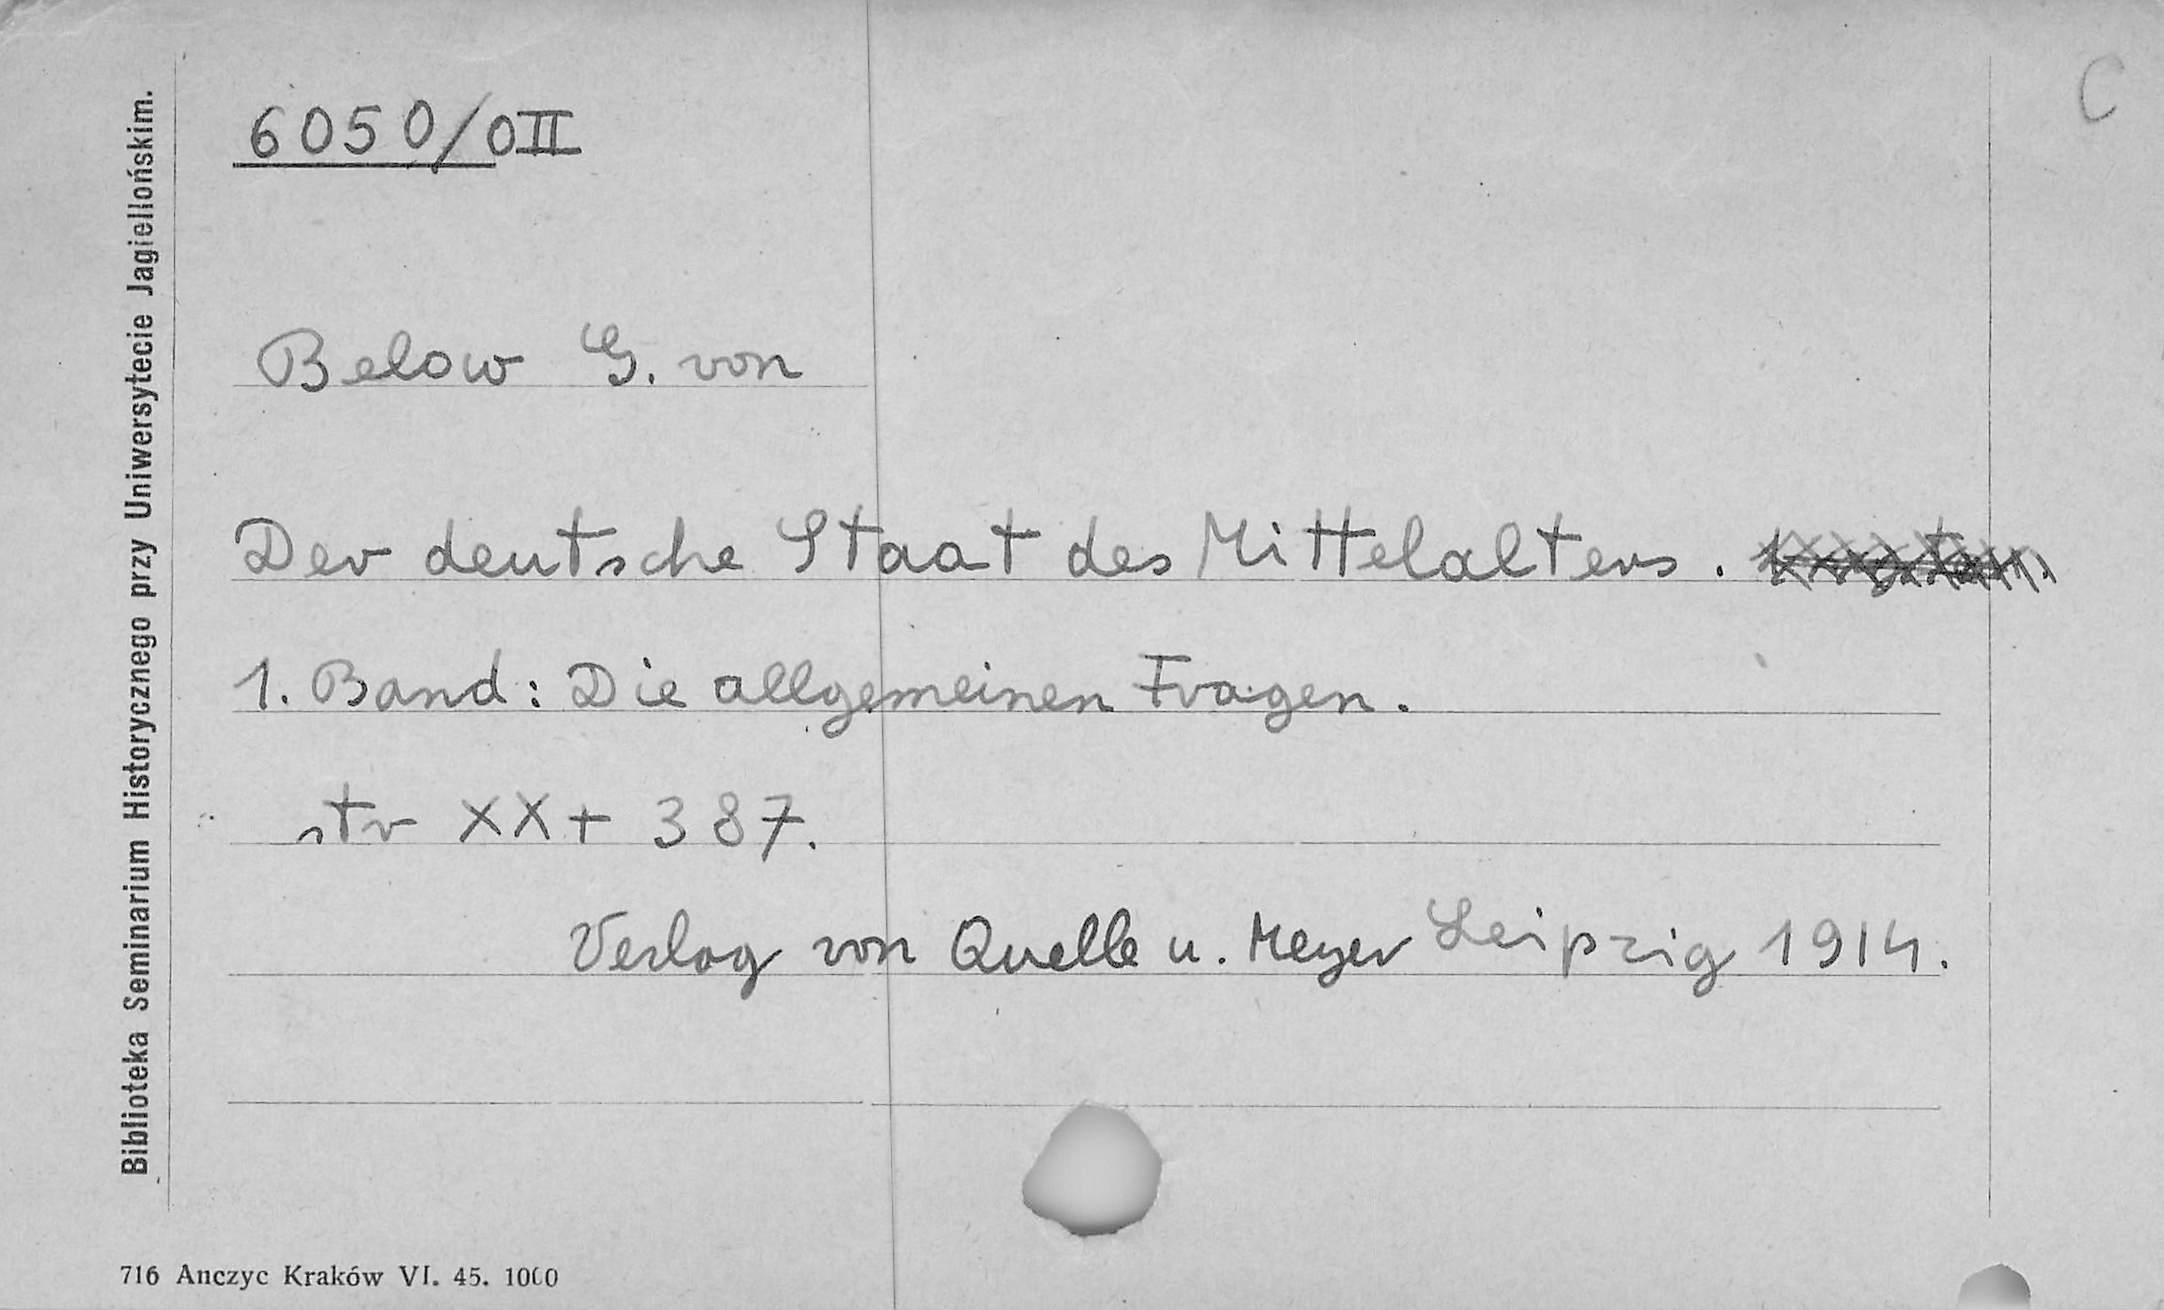 C
6050/0II
Below G. von
Der deutsche Staat des Mittelalters.
1. Band: Die allgemeinen Fragen.
str XX + 387.
Verlag von Quelle u. Meyer Leipzig 1914.
Biblioteka Seminarium Historycznego przy Uniwersytecie Jagiellońskim.
716 Anczyc Kraków VI. 45. 1000